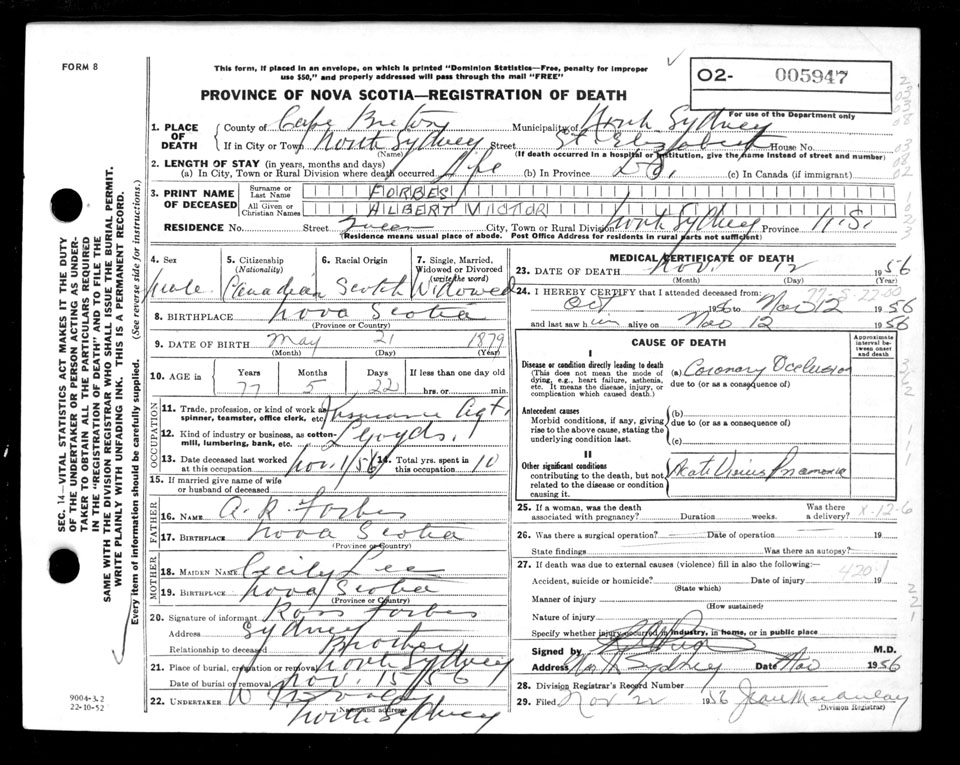 FORM 8
This form, if placed in an envelope, on which is printed "Dominion Statistics—Free, penalty for improper
use $50," and properly addressed will pass through the mail "FREE"
O2- 005947
For use of the Department only
PROVINCE OF NOVA SCOTIA—REGISTRATION OF DEATH
SEC. 14—VITAL STATISTICS ACT MAKES IT THE DUTY
OF THE UNDERTAKER OR PERSON ACTING AS UNDER-
TAKER TO OBTAIN ALL THE PARTICULARS REQUIRED
IN THE "REGISTRATION OF DEATH" AND TO FILE THE
SAME WITH THE DIVISION REGISTRAR WHO SHALL ISSUE THE BURIAL PERMIT.
WRITE PLAINLY WITH UNFADING INK. THIS IS A PERMANENT RECORD.
Every item of information should be carefully supplied. (See reverse side for instructions.)
1. PLACE OF DEATH
County of Cape Breton Municipality of North Sydney
If in City or Town North Sydney Street St. Elizabeth House No.
(Name) (If death occurred in a hospital or institution, give the name instead of street and number)
2. LENGTH OF STAY (in years, months and days)
(a) In City, Town or Rural Division where death occurred Life (b) In Province Do. (c) In Canada (if immigrant)
3. PRINT NAME OF DECEASED
Surname or Last Name FORBES
All Given or Christian Names ALBERT VICTOR
RESIDENCE No. Street Queen City, Town or Rural Division North Sydney Province N.S.
(Residence means usual place of abode. Post Office Address for residents in rural parts not sufficient)
4. Sex male
5. Citizenship (Nationality) Canadian
6. Racial Origin Scotch
7. Single, Married, Widowed or Divorced (write the word) Widowed
8. BIRTHPLACE Nova Scotia
(Province or Country)
9. DATE OF BIRTH May 21 1879
(Month) (Day) (Year)
10. AGE in Years Months Days If less than one day old
77 5 22 hrs. or min.
OCCUPATION
11. Trade, profession, or kind of work as
spinner, teamster, office clerk, etc. Insurance Agt.
12. Kind of industry or business, as cotton-
mill, lumbering, bank, etc. Lloyds.
13. Date deceased last worked
at this occupation Nov. 1/56
14. Total yrs. spent in
this occupation 10
15. If married give name of wife
or husband of deceased
FATHER
16. NAME A. R. Forbes
17. BIRTHPLACE Nova Scotia
(Province or Country)
MOTHER
18. MAIDEN NAME Cecily Lee
19. BIRTHPLACE Nova Scotia
(Province or Country)
20. Signature of informant Ross Forbes
Address Sydney
Relationship to deceased Brother
21. Place of burial, cremation or removal North Sydney
Date of burial or removal Nov. 15/56
22. UNDERTAKER
North Sydney
(Name and address)
MEDICAL CERTIFICATE OF DEATH
23. DATE OF DEATH Nov. 12 1956
(Month) (Day)
77-5-22-00
24. I HEREBY CERTIFY that I attended deceased from:
Oct 1956 to Nov 12 1956
and last saw him alive on Nov 12 1956
CAUSE OF DEATH
Approximate interval between onset and death
I
Disease or condition directly leading to death
(This does not mean the mode of
dying, e.g., heart failure, asthenia,
etc. It means the disease, injury, or
complication which caused death.)
(a) Coronary Occlusion
due to (or as a consequence of)
Antecedent causes
Morbid conditions, if any, giving
rise to the above cause, stating the
underlying condition last.
(b)
due to (or as a consequence of)
(c)
II
Other significant conditions
contributing to the death, but not
related to the disease or condition
causing it.
Acute Virus Pneumonia
25. If a woman, was the death
associated with pregnancy? Duration weeks. Was there a delivery?
X-12-6
26. Was there a surgical operation? Date of operation 19
State findings Was there an autopsy?
27. If death was due to external causes (violence) fill in also the following:—
420.1
Accident, suicide or homicide? Date of injury 19
(State which)
Manner of injury
(How sustained)
Nature of injury
Specify whether injury occurred in industry, in home, or in public place
Signed by M.D.
Address North Sydney Date Nov 1956
28. Division Registrar's Record Number
29. Filed Nov 22 1956 Jean Macaulay
(Division Registrar)
9004-3.2
22-10-52